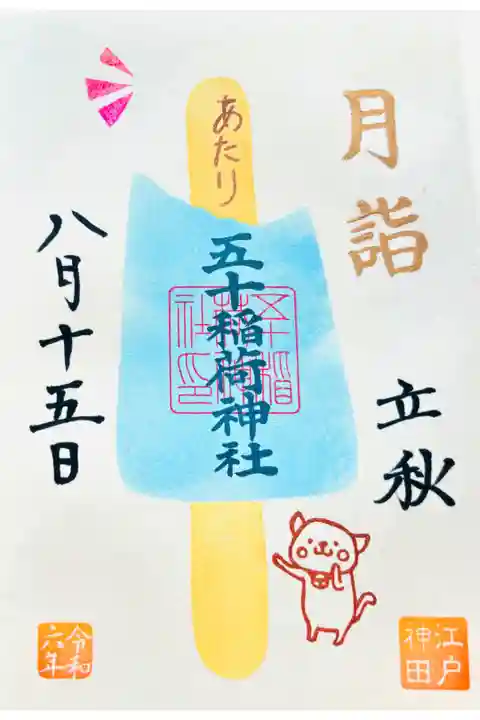 月詣
立秋
あたり
五十稲荷神社
五十稲荷社印
八月十五日
江戸神田
令和六年